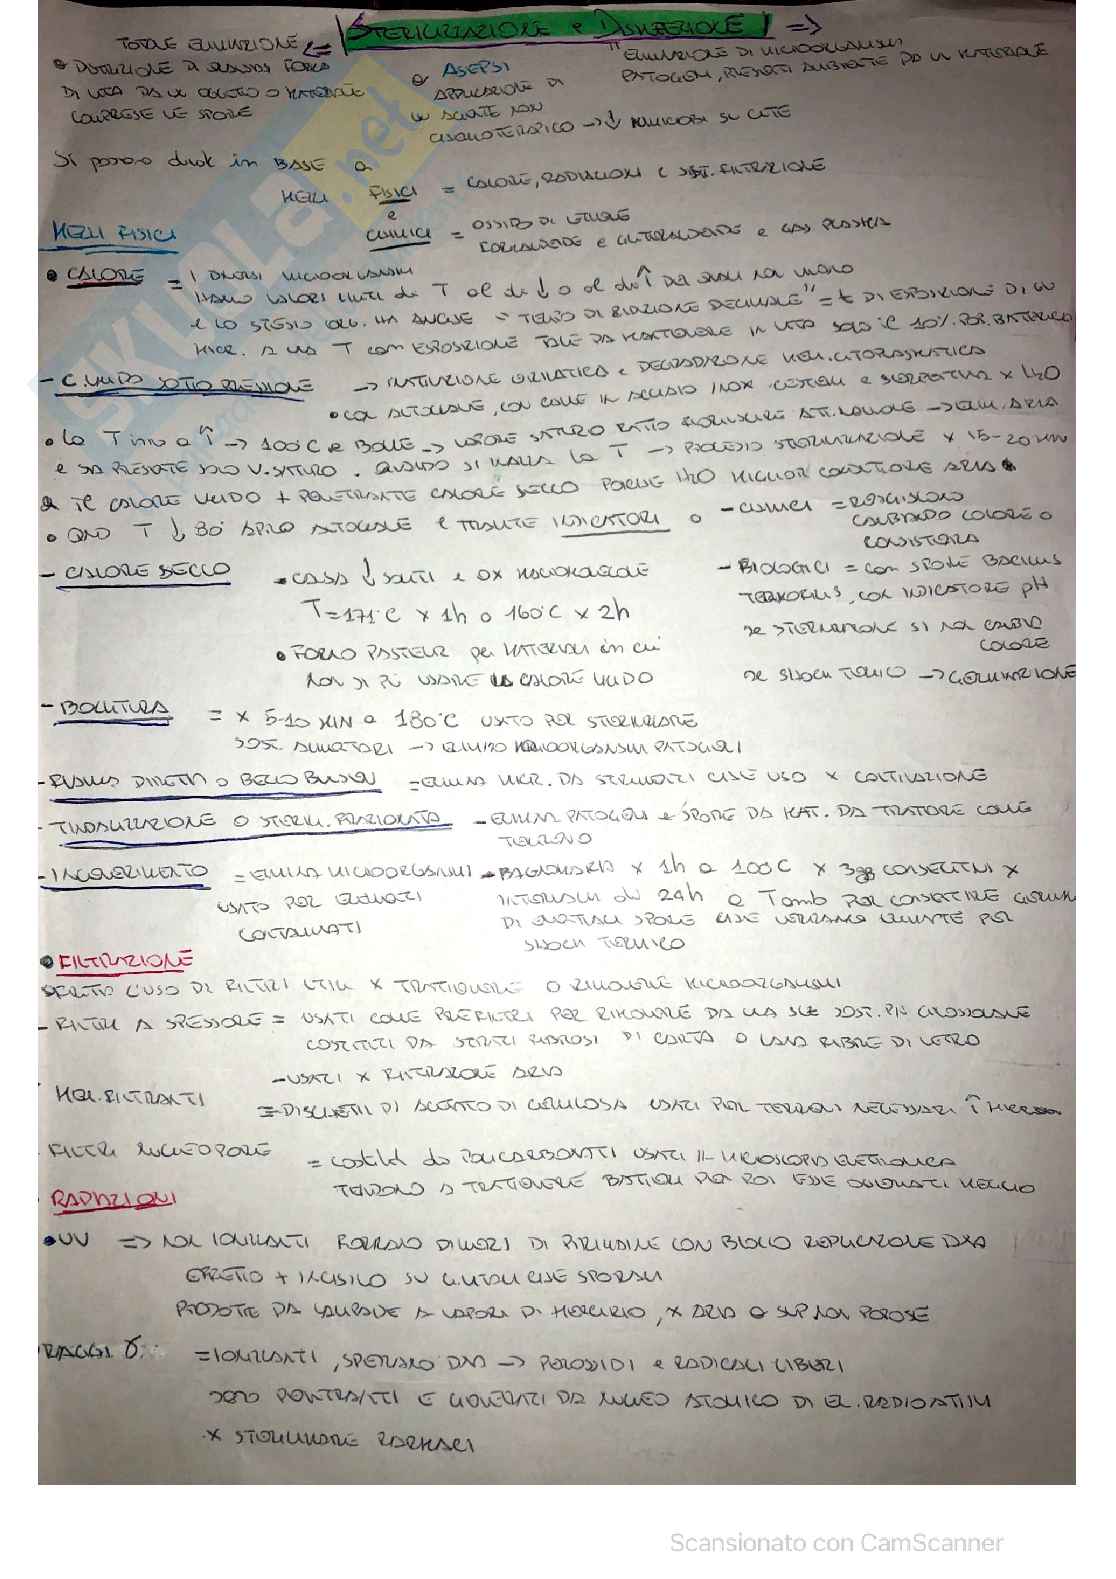 STERILIZZAZIONE e DISINFEZIONE =>
TOTALE ELIMINAZIONE <=
DISTRUZIONE DI QUALSIASI FORMA
DI VITA DA UN OGGETTO O MATERIALE
COMPRESE LE SPORE
ASEPSI
APPLICAZIONE DI
UN AGENTE NON
CHEMIOTERAPICO -> ↓ MICROBI SU CUTE
"ELIMINAZIONE DI MICRORGANISMI
PATOGENI, PRESENTI DA UN MATERIALE
Si possono in BASE a
MEZZI FISICI = CALORE, RADIAZIONI E SIST. FILTRAZIONE
e
CHIMICI = OSSIDO DI ETILENE
FORMALDEIDE e GLUTERALDEIDE e GAS PLASMA
MEZZI FISICI
• CALORE = I DIVERSI MICRORGANISMI
HANNO VALORI LIMITI di T al di ↓ o al di ↑ DEI QUALI NON VIVONO
E LO STESSO HA ANCHE "TEMPO DI RIDUZIONE DECIMALE" = t DI ESPOSIZIONE DI UN
MICR. A UNA T com ESPOSIZIONE TALE DA MANTENERE IN VITA SOLO IL 10% POP. BATTERICA
- C. UMIDO SOTTO PRESSIONE -> INATTIVAZIONE E DEGRADAZIONE MEM. CITOPLASMATICA
• CON AUTOCLAVE, CON IN ACCIAIO INOX CESTELLI e SERPENTINA x H2O
• la T ↑ -> 100°C e BOLLE -> VAPORE SATURO FUORIUSCIRE -> ELIM. ARIA
E SIA PRESENTE SOLO V. SATURO. QUANDO SI la T -> PROCESSO STERILIZZAZIONE x 15-20 MIN
IL CALORE UMIDO + PENETRANTE CALORE SECCO PERCHE H2O MIGLIOR CONDUTTORE ARIA
• QND T ↓ 80 APRO AUTOCLAVE E TRAMITE INDICATORI
- CHIMICI =
CAMBIANDO COLORE O
CONSISTENZA
- BIOLOGICI = com SPORE BACILLUS
TERMOFILUS, CON INDICATORE pH
se STERILIZZAZIONE SI NON CAMBIA
COLORE
se SHOCK TERMICO -> GERMINAZIONE
- CALORE SECCO • CAUSA ↓ SALTI E OX MACROMOLECOLE
T=171°C x 1h o 160°C x 2h
• FORNO PASTEUR per MATERIALI in cui
NON SI PUÒ USARE IL CALORE UMIDO
- BOLLITURA = x 5-10 MIN a 180°C USATO PER STERILIZZARE
SOST. ALIMENTARI -> ELIMINO MICRORGANISMI PATOGENI
- FIAMMA DIRETTA O BECCO BUNSEN = ELIMINA MICR. DA STRUMENTI CHE USO x COLTIVAZIONE
- TINDALIZZAZIONE O STERIL. FRAZIONATA - ELIMINA PATOGENI e SPORE DA MAT. DA TRATTARE COME
TERRENO
- BAGNOMARIA x 1h a 100°C x 3gg CONSECUTIVI x
INTERVALLI di 24h a Tamb PER CONSENTIRE
DI EVENTUALI SPORE CHE VERRANNO ELIMINATE PER
SHOCK TERMICO
- INCENERIMENTO = ELIMINA MICRORGANISMI
USATO PER ELEMENTI
CONTAMINATI
• FILTRAZIONE
SFRUTTO L'USO DI FILTRI UTILI x TRATTENERE O RIMUOVERE MICRORGANISMI
- FILTRI A SPESSORE = USATI COME PREFILTRI PER RIMUOVERE DA UNA SLZ SOST. PIÙ GROSSOLANE
COSTITUITI DA STRATI FIBROSI DI CARTA O LANA FIBRE DI VETRO
- USATI x FILTRAZIONE ARIA
MEM. FILTRANTI = DISCHETTI DI ACETATO DI CELLULOSA USATI PER TERRENI NECESSARI ↑
FILTRI NUCLEOPORE = costituiti da POLICARBONATI USATI IN MICROSCOPIA ELETTRONICA
TENDONO A TRATTENERE BATTERI PER POI ESSE OSSERVATI MEGLIO
RADIAZIONI
• UV => NON IONIZZANTI FORMANO DIMERI DI PIRIMIDINE CON BLOCCO REPLICAZIONE DNA
EFFETTO + INCISIVO SU CHE SPORALI
PRODOTTE DA LAMPADE A VAPORI DI MERCURIO, x ARIA o SUP NON POROSE
RAGGI γ = IONIZZANTI, SPEZZANO DNA -> PEROSSIDI e RADICALI LIBERI
SONO PENETRANTI E GENERATI DA NUCLEO ATOMICO DI EL. RADIOATTIVI
x STERILIZZARE FARMACI
SKUOLA.net
Scansionato con CamScanner